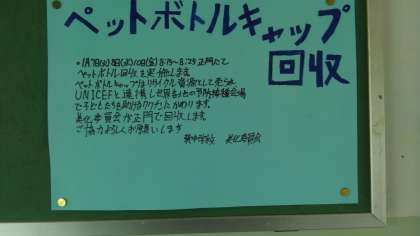 ペットボトルキャップ
回収
・1月7日(火)8日(水)10日(金) 8:15〜8:25 正門にて
ペットボトル回収を実施します。
ペットボトルキャップはリサイクル資源として売られ
UNICEFと連携し世界各地の予防接種会場
で子どもたちを助けるワクチンにかわります。
美化委員会が正門で回収します。
ご協力よろしくお願いします
中学校 美化委員会